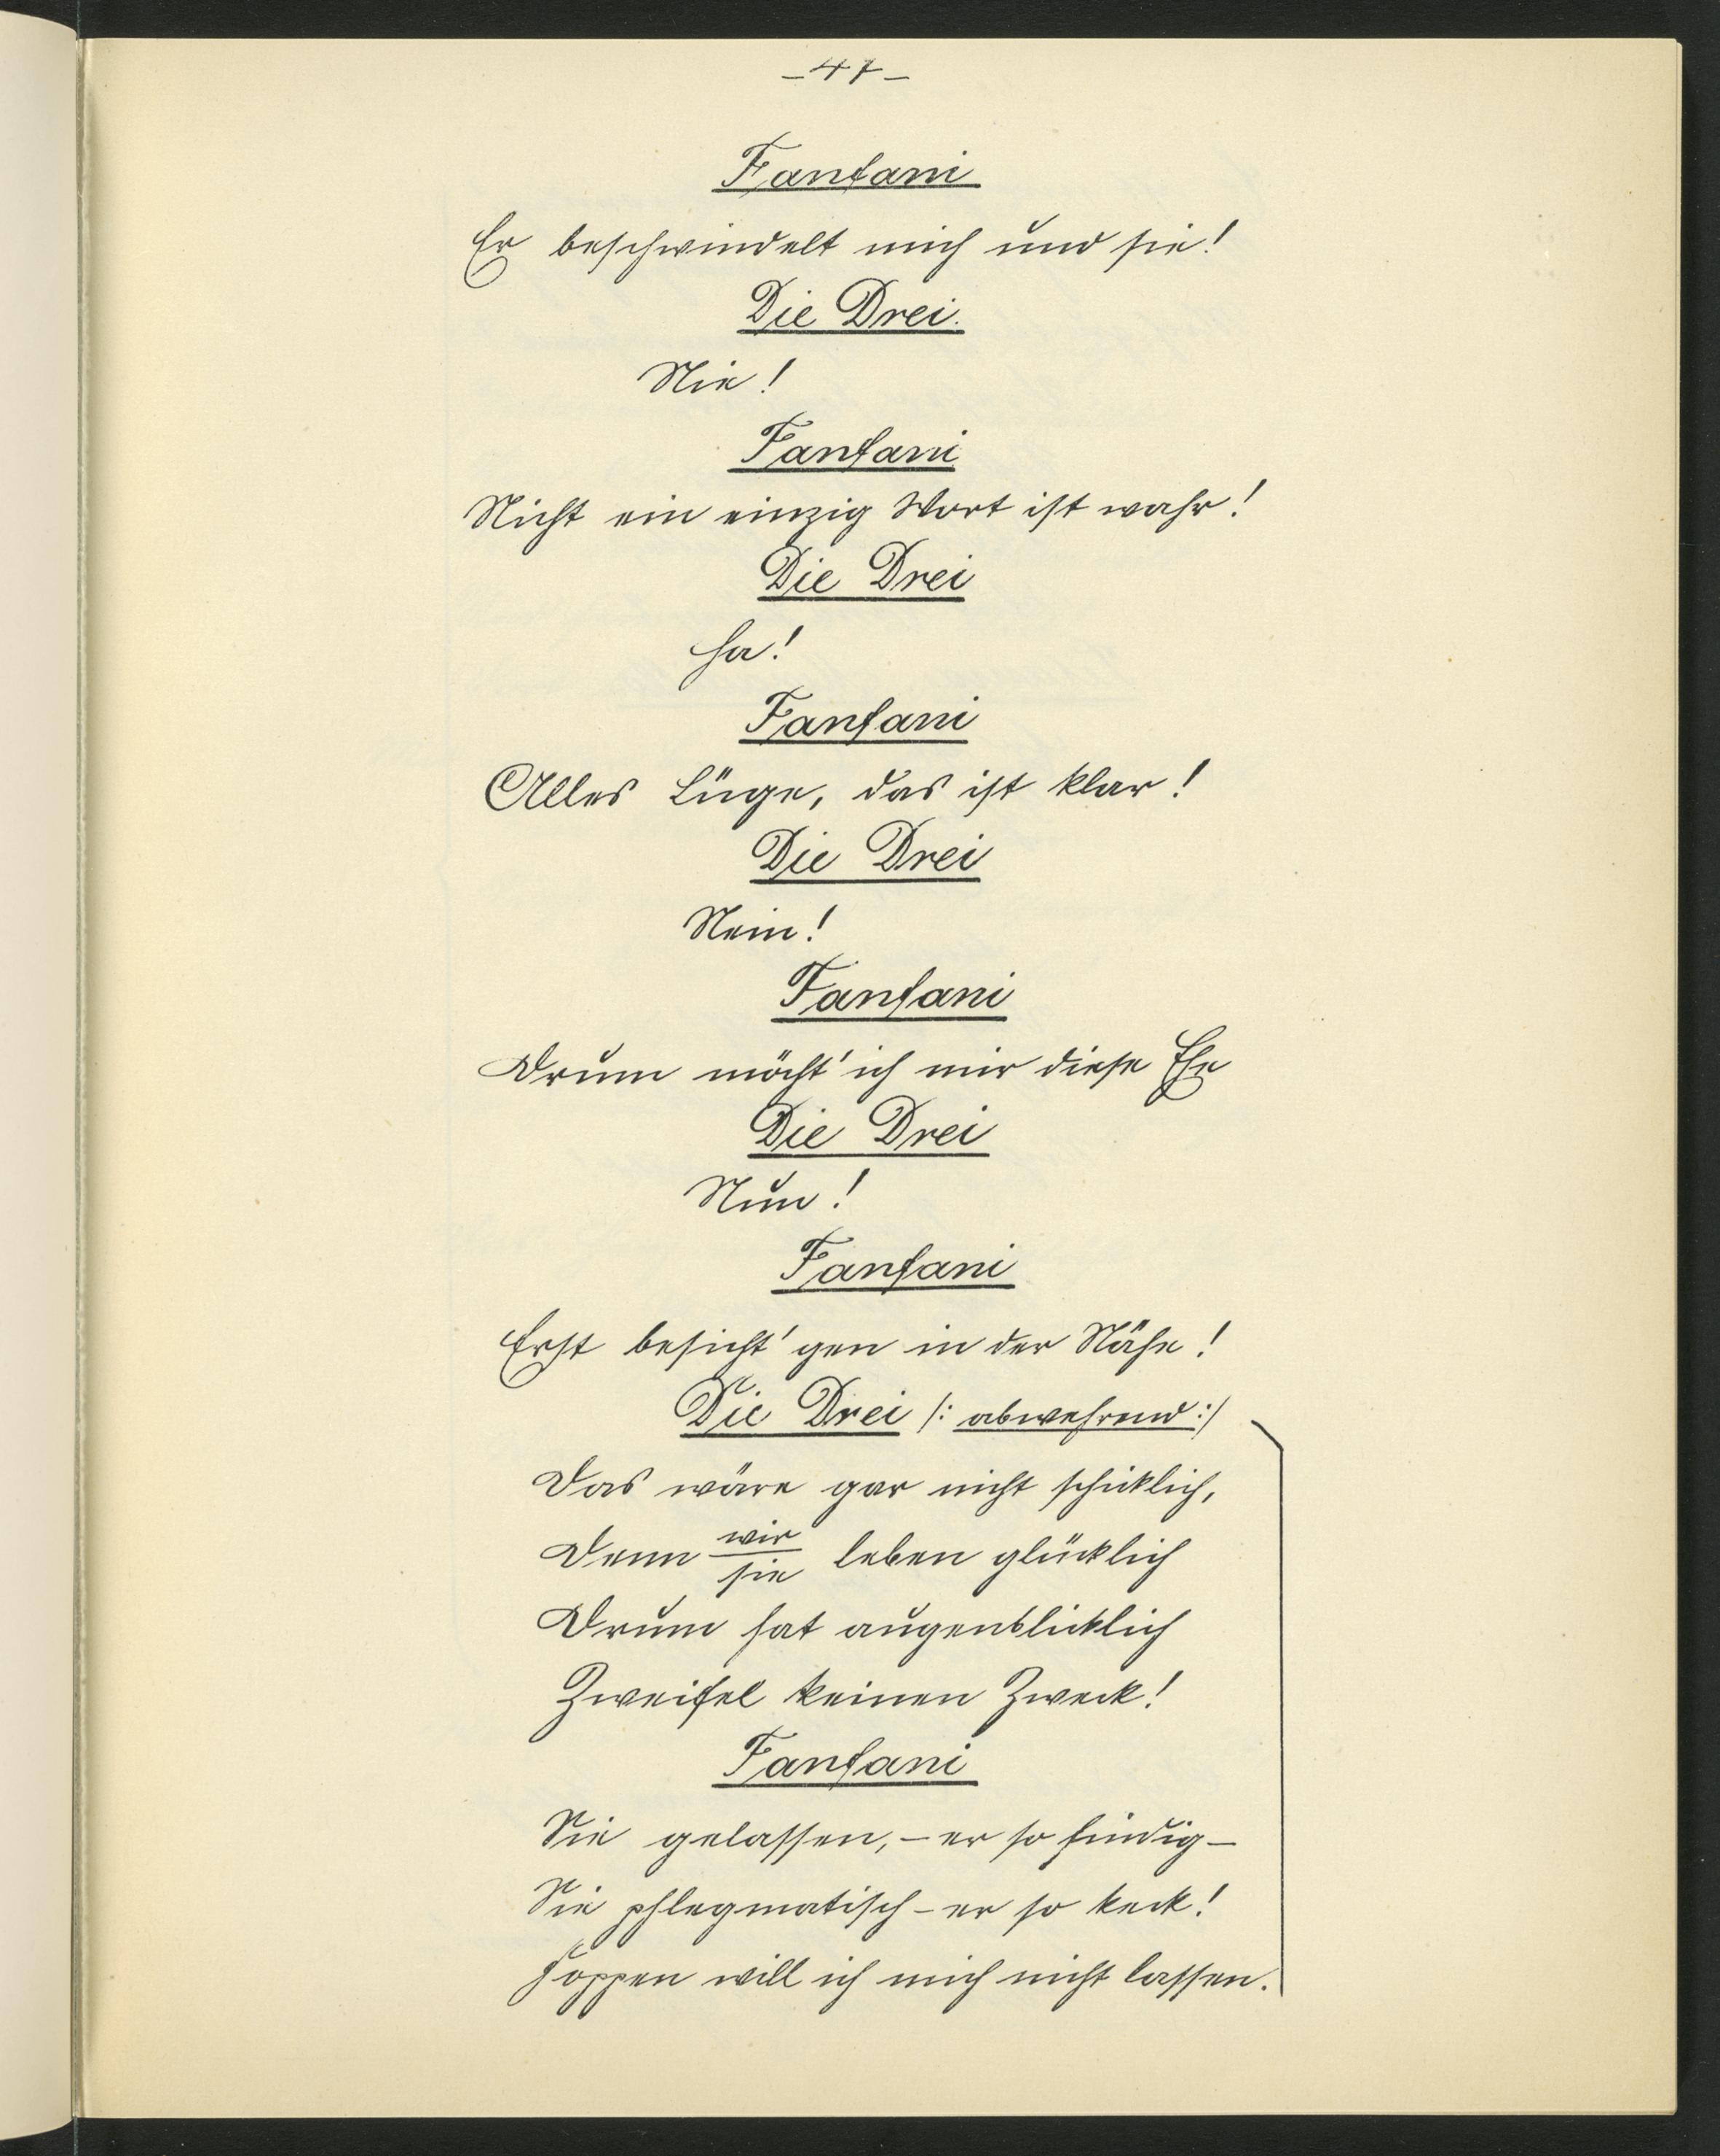 – 47 –
Fanfani
Er beschwindelt mich und sie!
Die Drei.
Nie!
Fanfani
Nicht ein einzig Wort ist wahr!
Die Drei
Ha!
Fanfani
Alles Lüge, das ist klar!
Die Drei
Nein!
Fanfani
Drum möcht' ich mir diese Ehe
Die Drei
Nun!
Fanfani
Erst besicht'gen in der Nähe!
Die Drei /: abwehrend :/
Das wäre gar nicht schicklich,
Denn wir/sie leben glücklich
Drum hat augenblicklich
Zweifel keinen Zweck!
Fanfani
Sie gelassen, – er so findig –
Sie phlegmatisch – er so keck!
Foppen will ich mich nicht lassen.